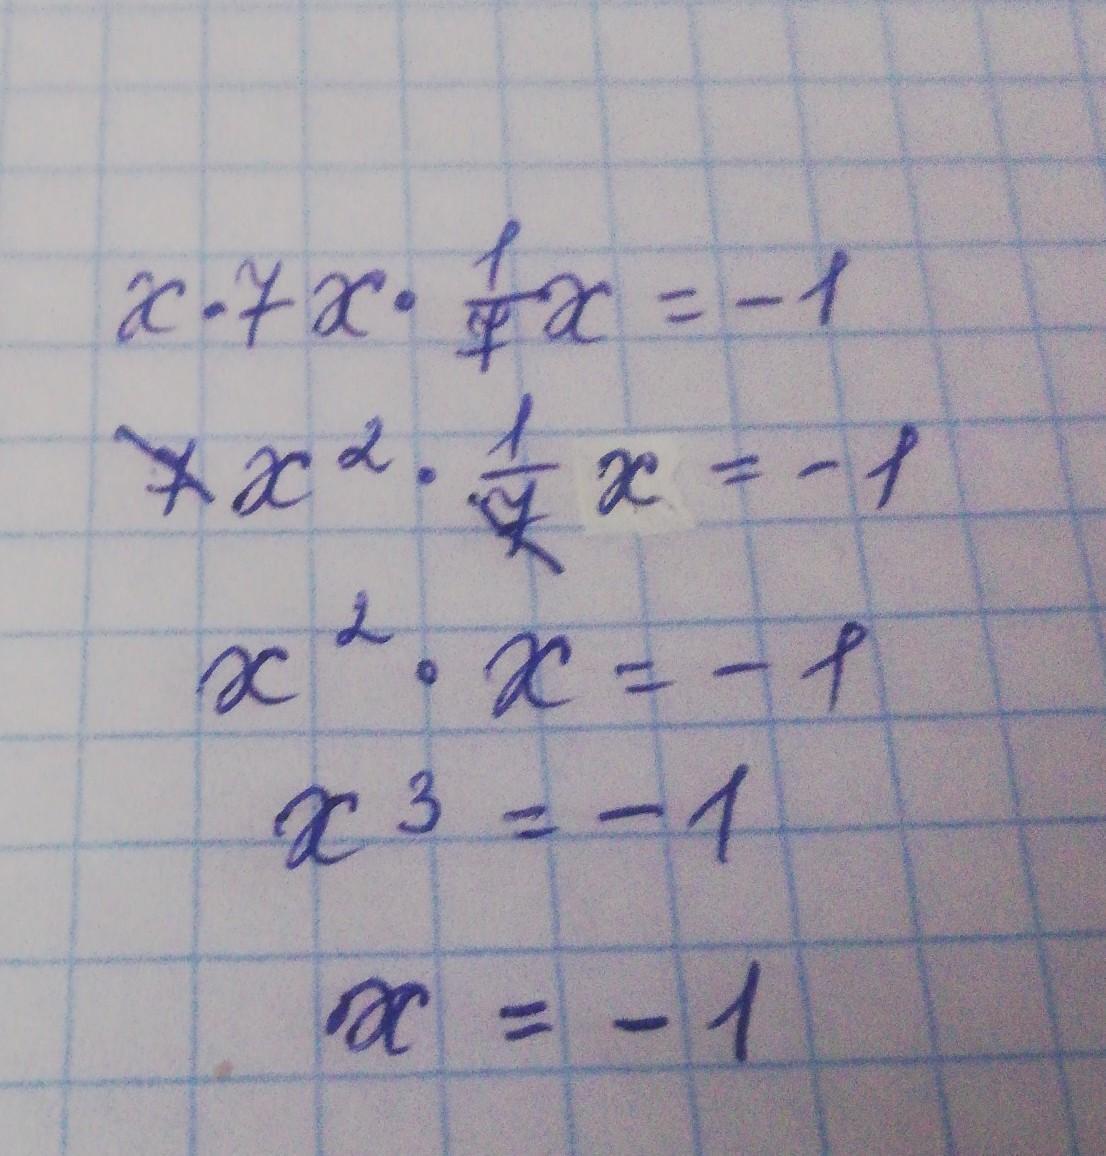 x · 7x · 1/7 x = -1
7x² · 1/7 x = -1
x² · x = -1
x³ = -1
x = -1